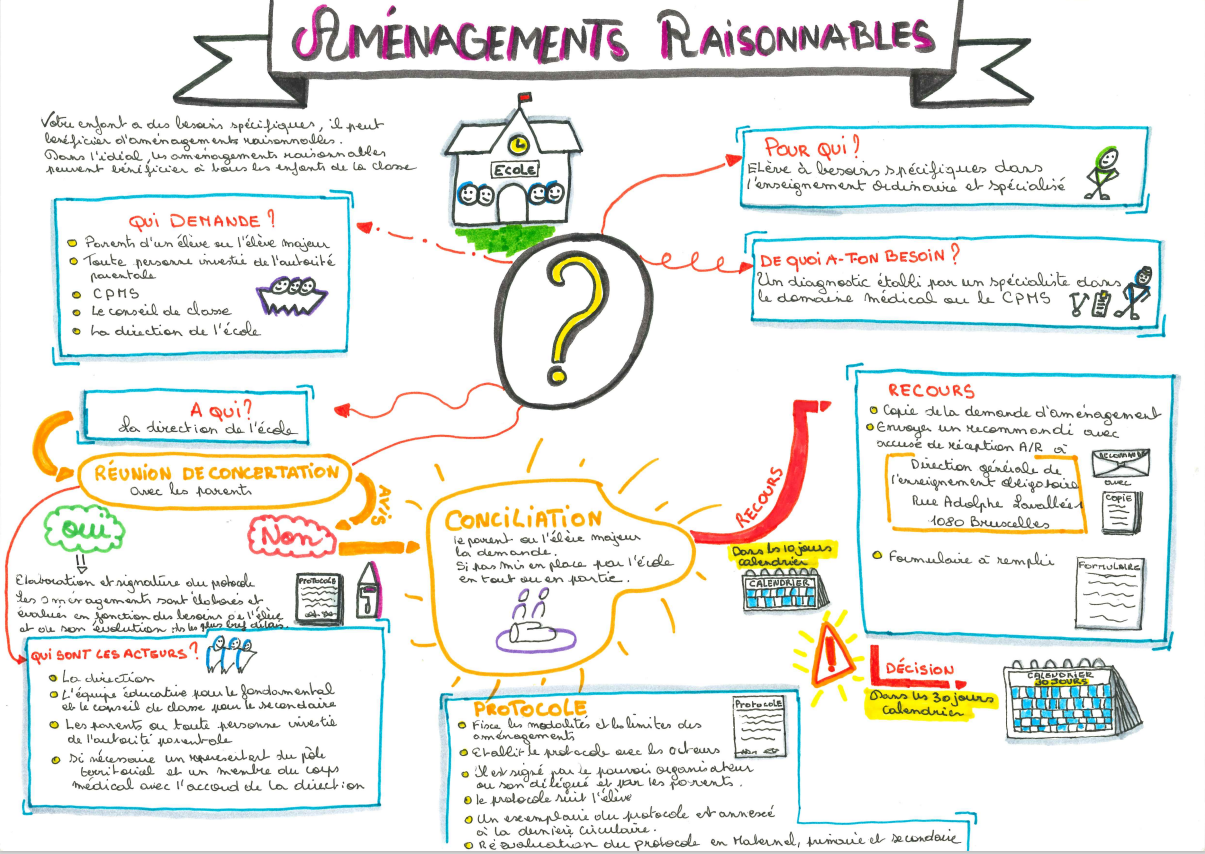 AMÉNAGEMENTS RAISONNABLES
Votre enfant a des besoins spécifiques, il peut
bénéficier d'aménagements raisonnables.
Dans l'idéal, les aménagements raisonnables
peuvent bénéficier à tous les enfants de la classe
ECOLE
POUR QUI ?
Elève à besoins spécifiques dans
l'enseignement ordinaire et spécialisé
QUI DEMANDE ?
Parents d'un élève ou l'élève majeur
Toute personne investie de l'autorité
parentale
CPMS
Le conseil de classe
La direction de l'école
DE QUOI A-TON BESOIN ?
Un diagnostic établi par un spécialiste dans
le domaine médical ou le CPMS
A QUI ?
La direction de l'école
RÉUNION DE CONCERTATION
avec les parents
AVIS
OUI
Non
Elaboration et signature du protocole
Les aménagements sont élaborés et
évalués en fonction des besoins de l'élève
et de son évolution ; ds les plus bref délais.
PROTOCOLE
QUI SONT LES ACTEURS ?
La direction
L'équipe éducative pour le fondamental
et le conseil de classe pour le secondaire
Les parents ou toute personne investie
de l'autorité parentale
Si nécessaire un représentant du pôle
territorial et un membre du corps
médical avec l'accord de la direction
CONCILIATION
le parent ou l'élève majeur
la demande.
Si pas mis en place par l'école
en tout ou en partie.
RECOURS
Dans les 10 jours
calendrier
CALENDRIER
RECOURS
Copie de la demande d'aménagement
Envoyer un recommandé avec
accusé de réception A/R à
Direction générale de
l'enseignement obligatoire
Rue Adolphe Lavallée 1
1080 Bruxelles
RECOMMANDÉ
avec
COPIE
Formulaire à remplir
FORMULAIRE
DÉCISION
Dans les 30 jours
Calendrier
CALENDRIER
30 JOURS
PROTOCOLE
Fixe les modalités et les limites des
aménagements
Etablit le protocole avec les acteurs
Il est signé par le pouvoir organisateur
ou son délégué et par les parents.
le protocole suit l'élève
Un exemplaire du protocole est annexé
à la dernière circulaire.
Réévaluation du protocole en Maternel, primaire et secondaire
Protocole